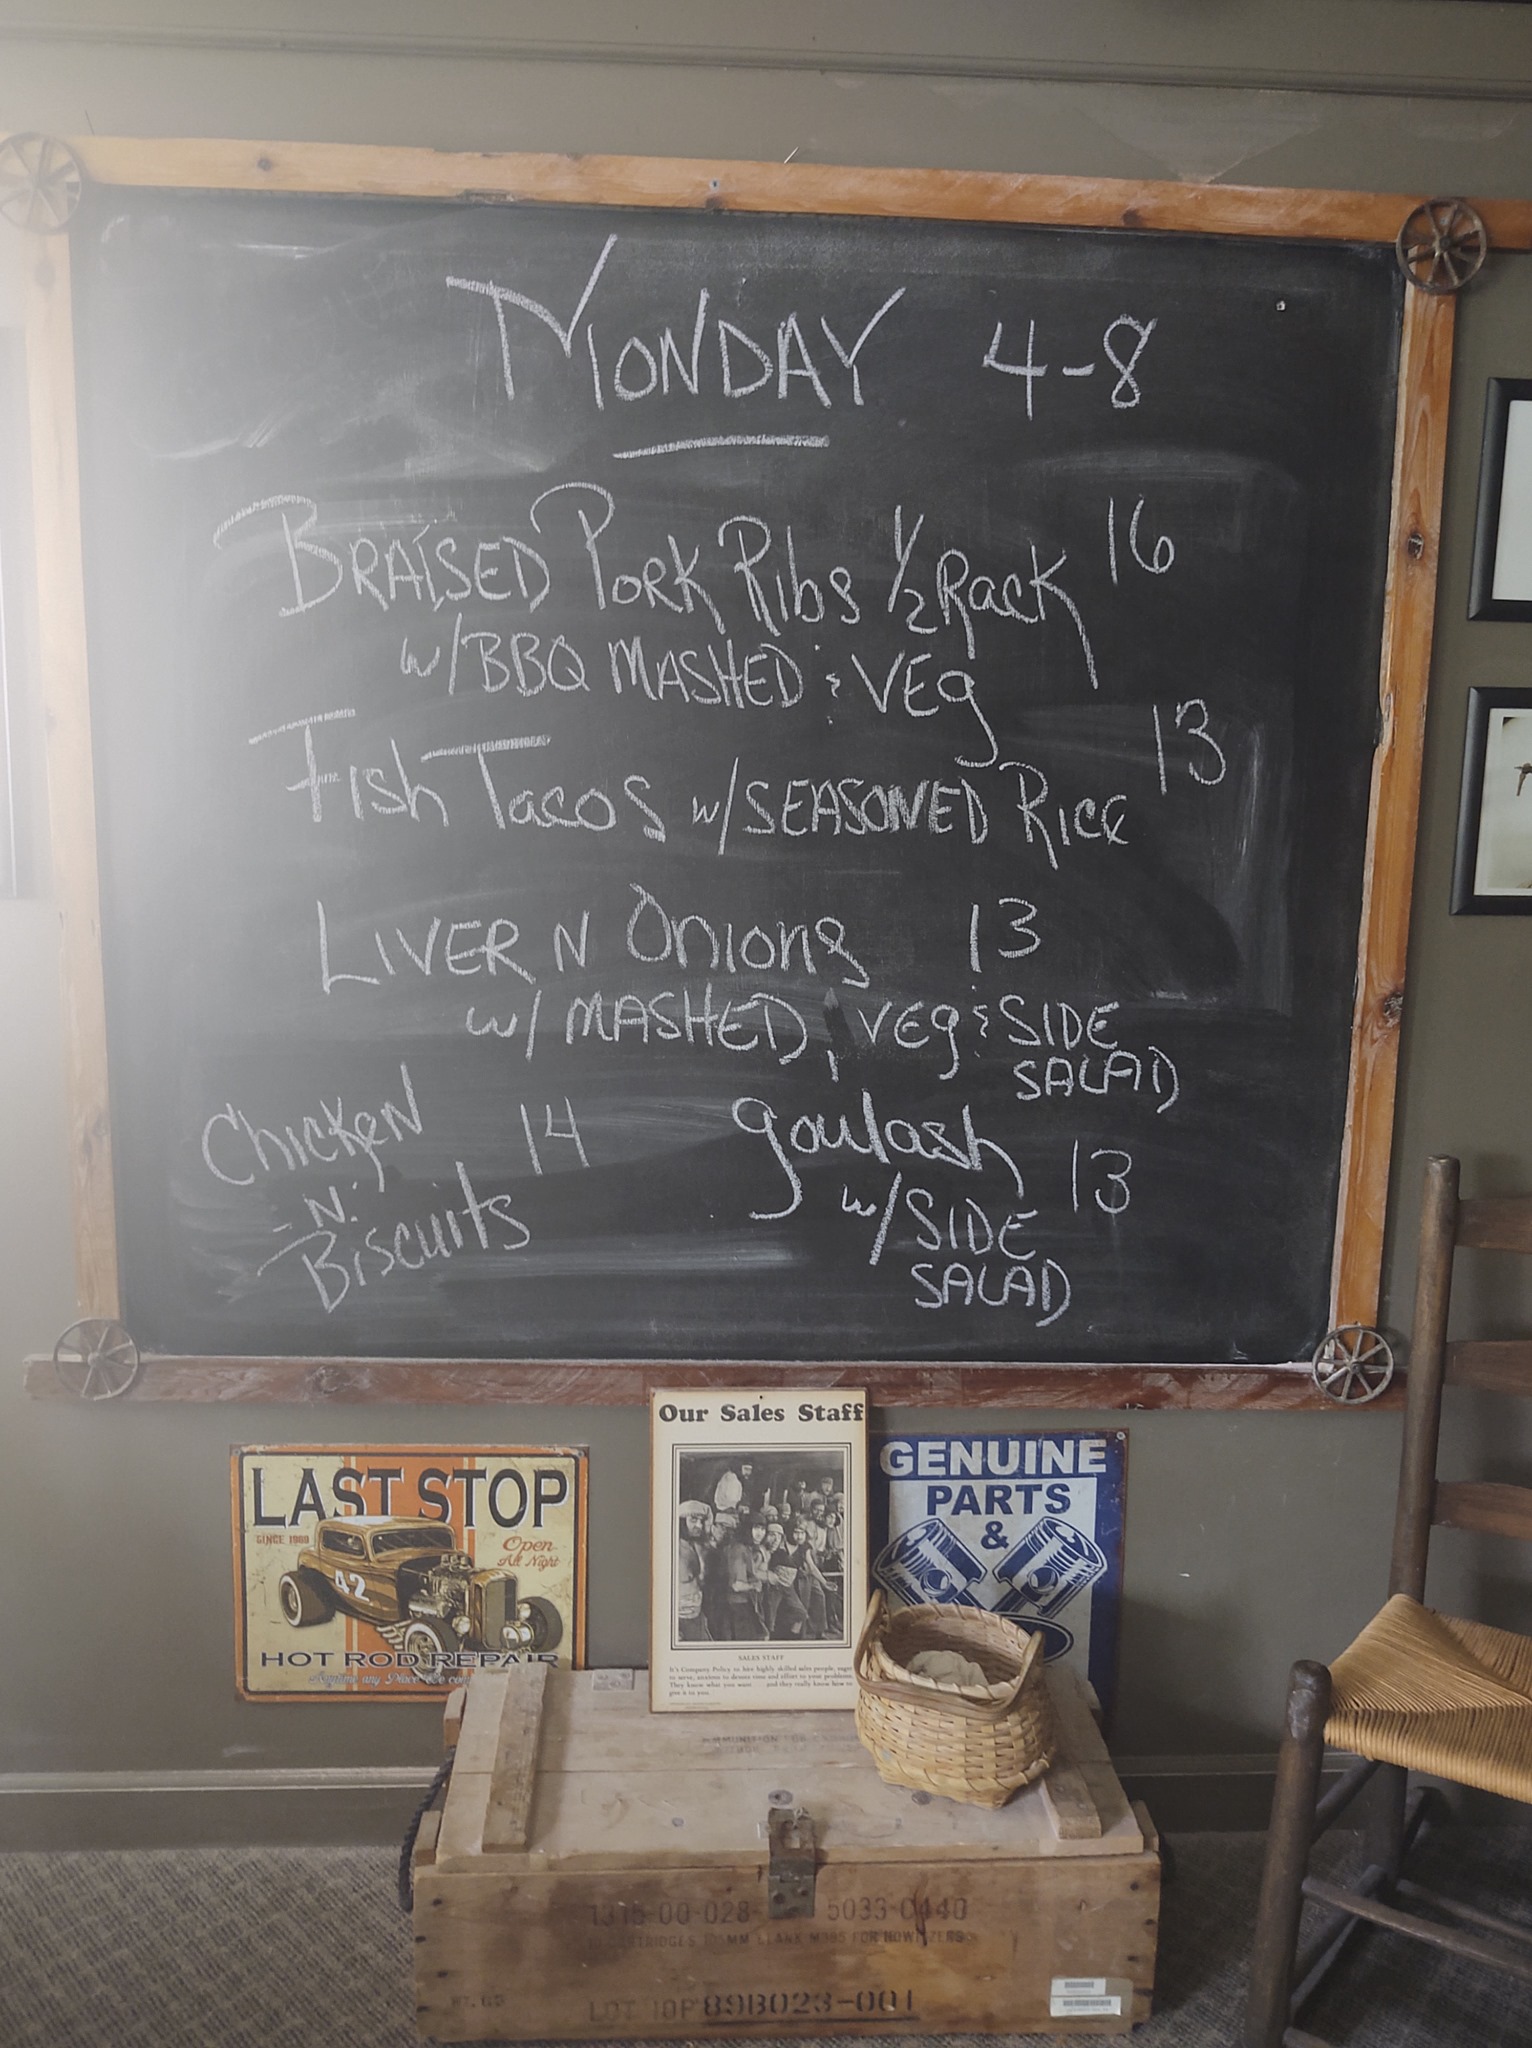 MONDAY 4-8
BRAISED PORK Ribs 1/2 Rack 16
w/ BBQ MASHED & VEg
Fish Tacos w/ SEASONED Rice 13
LIVER N Onions 13
w/ MASHED, VEg & SIDE
SALAD
Chicken 14
-N-
Biscuits
goulash 13
w/ SIDE
SALAD
LAST STOP
SINCE 1960
Open
All Night
42
HOT ROD REPAIR
Anytime any Place We com
Our Sales Staff
SALES STAFF
It's Company Policy to hire highly skilled sales people, eager
to serve, anxious to devote time and effort to your problems.
They know what you want and they really know how to
give it to you.
GENUINE
PARTS
&
1315-00-028- 5033-0440
CARTRIDGES 105MM BLANK M395 FOR HOWITZERS
LOT IOP 89B023-001